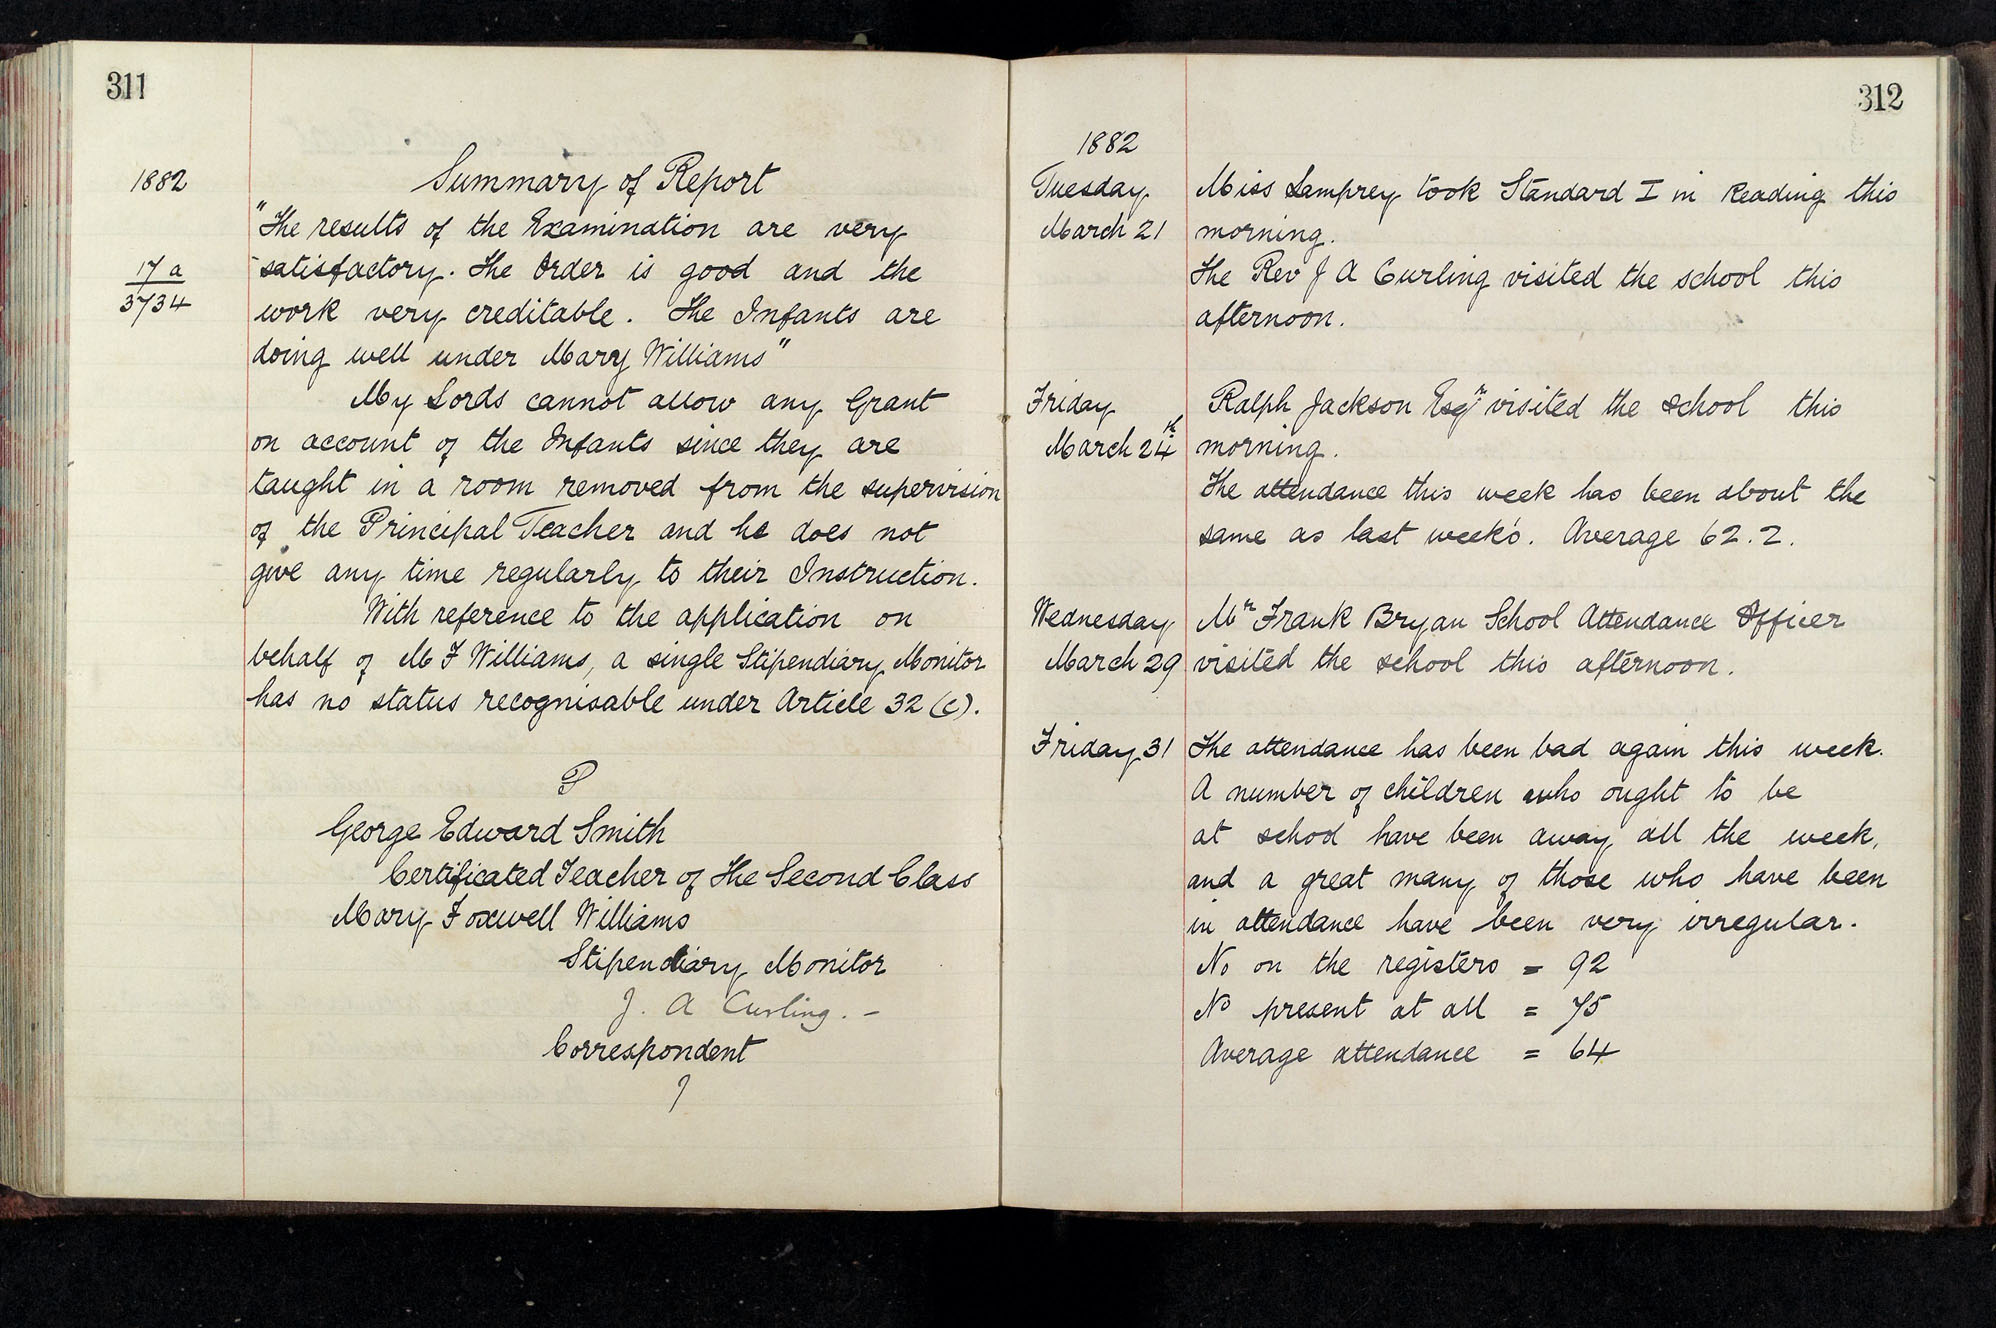 311
1882
Summary of Report
"The results of the Examination are very
satisfactory. The Order is good and the
17 a
3734
work very creditable. The Infants are
doing well under Mary Williams"
My Lords cannot allow any Grant
on account of the Infants since they are
taught in a room removed from the supervision
of the Principal Teacher and he does not
give any time regularly to their Instruction.
With reference to the application on
behalf of M F Williams, a single Stipendiary Monitor
has no status recognisable under Article 32 (c).
George Edward Smith
Certificated Teacher of The Second Class
Mary Foxwell Williams
Stipendiary Monitor
J. A Curling. -
Correspondent
312
1882
Tuesday Miss Lamprey took Standard I in Reading this
March 21 morning.
The Rev J A Curling visited the school this
afternoon.
Friday Ralph Jackson Esqr visited the school this
March 24th morning.
The attendance this week has been about the
same as last week's. Average 62.2.
Wednesday Mr Frank Bryan School Attendance Officer
March 29 visited the school this afternoon.
Friday 31 The attendance has been bad again this week.
A number of children who ought to be
at school have been away all the week,
and a great many of those who have been
in attendance have been very irregular.
No on the registers = 92
No present at all = 75
Average attendance = 64